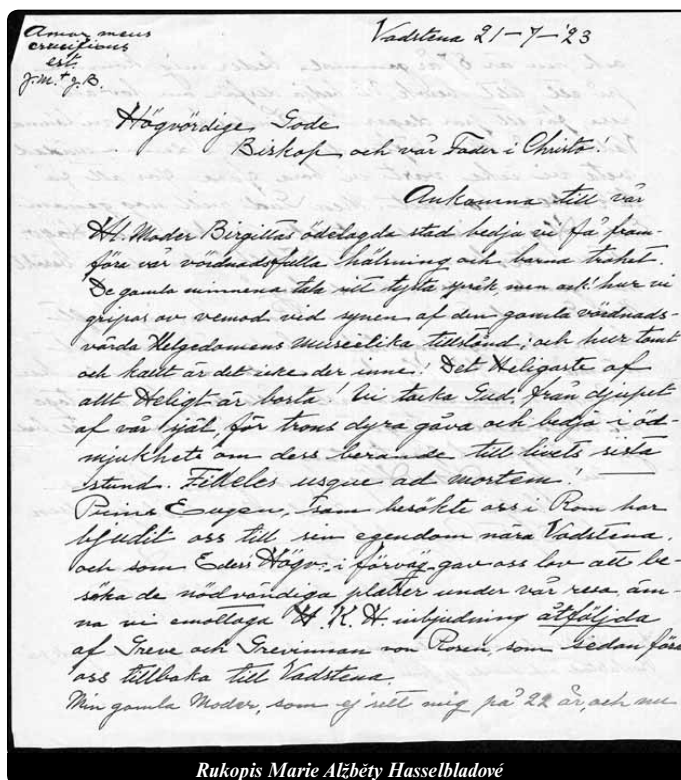 Amor meus
crucifixus
est.
J. M. + J. B.
Vadstena 21-7-'23
Högvördige Gode
Biskop och vår Fader i Christo!
Ankomna till vår
Hl. Moder Birgittas ödelagda stad bedja vi få fram-
föra vår vördnadsfulla hälsning och barna trohet.
De gamla minnena tala sitt tysta språk, men ack! hur vi
gripas av vemod vid synen af den gamla vördnads-
värda Helgedomens museilika tillstånd; och hur tomt
och kallt är det icke der inne! Det Heligaste af
allt Heligt är borta! Vi tacka Gud, från djupet
af vår själ, för trons dyra gåva och bedja i öd-
mjukhet om dess berande till livets sista
stund. Fideles usque ad mortem!
Prins Eugen, som besökte oss i Rom har
bjudit oss till sin egendom nära Vadstena,
och som Eders Högv. i förväg gav oss lov att be-
söka de nödvändiga platser under vår resa, äm-
na vi emottaga H. K. H. inbjudning åtföljda
af Greve och Grevinnan von Rosen, som sedan föra
oss tillbaka till Vadstena.
Min gamla Moder, som ej sett mig på 22 år, och nu
Rukopis Marie Alžběty Hasselbladové